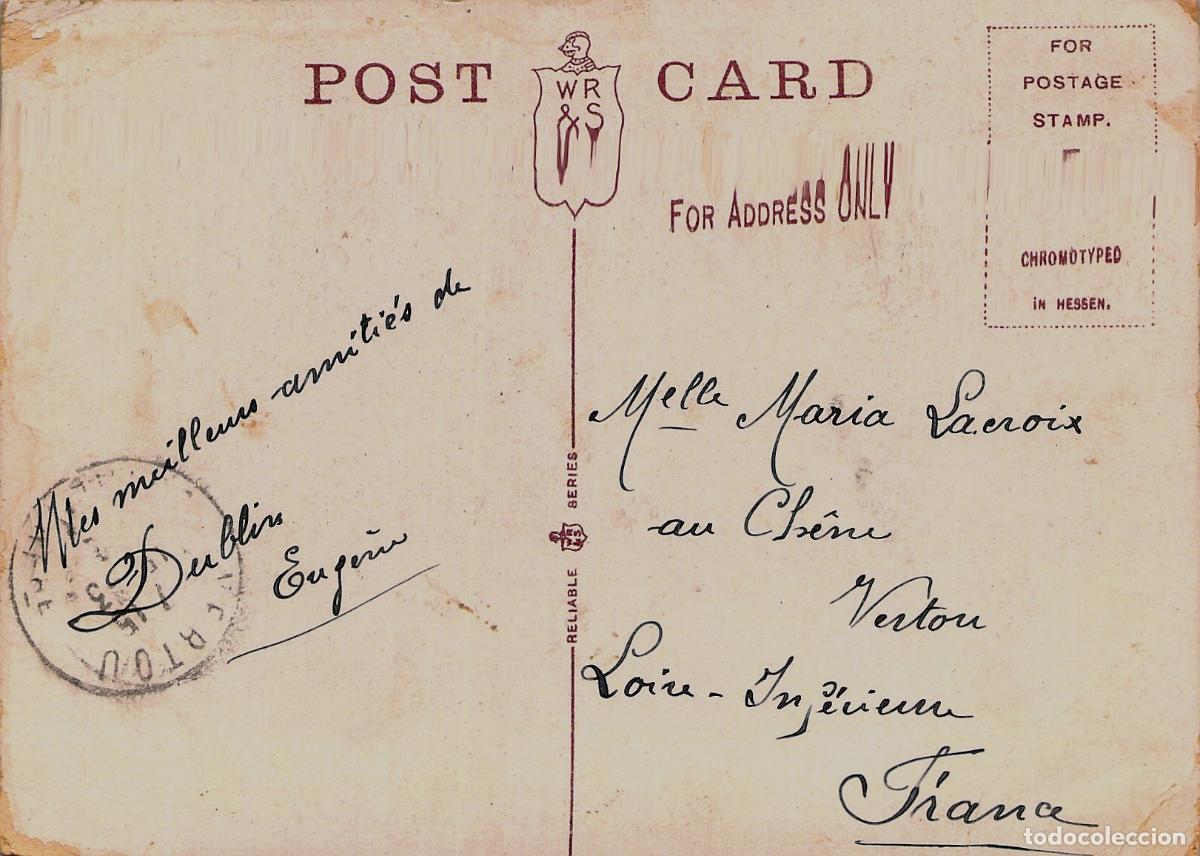 POST CARD
WR
& S
FOR
POSTAGE
STAMP.
CHROMOTYPED
IN HESSEN.
FOR ADDRESS ONLY
Mes meilleurs amitiés de
Dublin
Eugène
VERTOU
RELIABLE WR&S SERIES
Melle Maria Lacroix
au Chêne
Vertou
Loire-Inférieure
France
todocoleccion